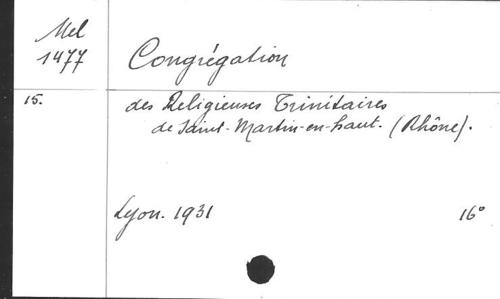 Mel
1477
Congrégation
15.
des Religieuses Trinitaires
de Saint-Martin-en-haut. (Rhône).
Lyon. 1931
16°